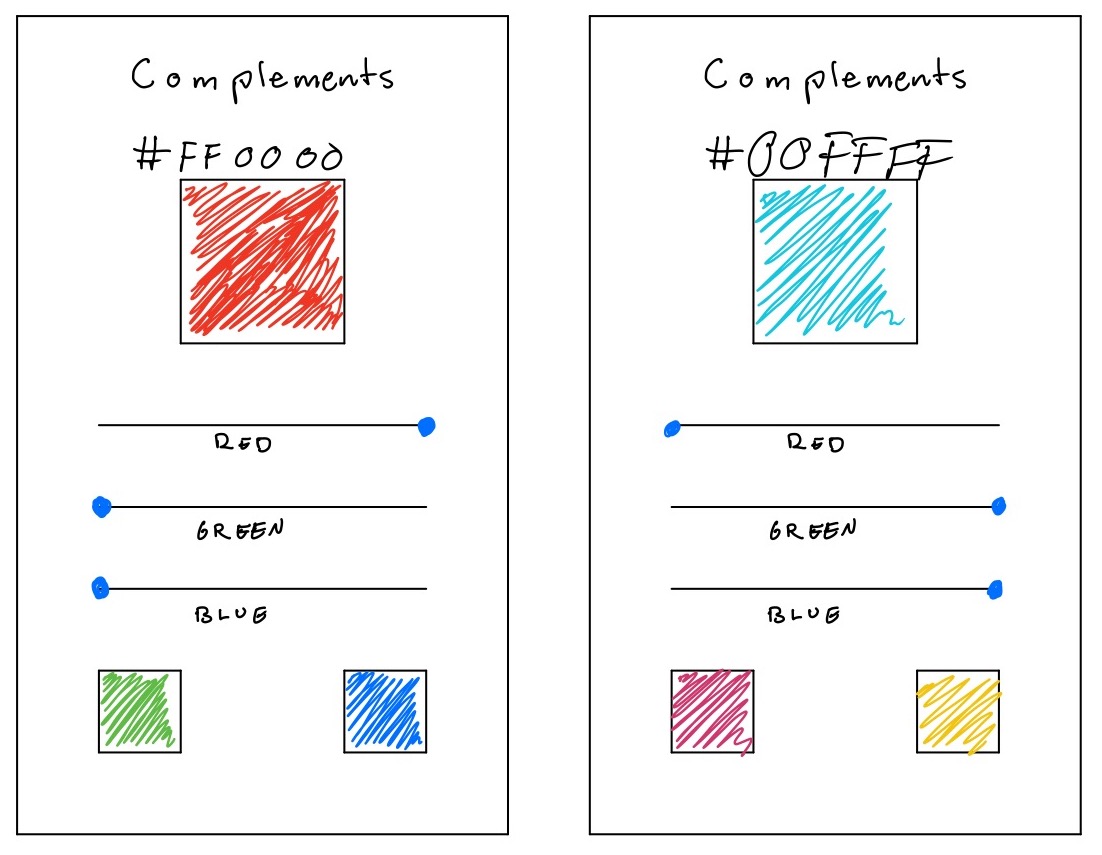 Complements
#FF0000
RED
GREEN
BLUE
Complements
#00FFFF
RED
GREEN
BLUE